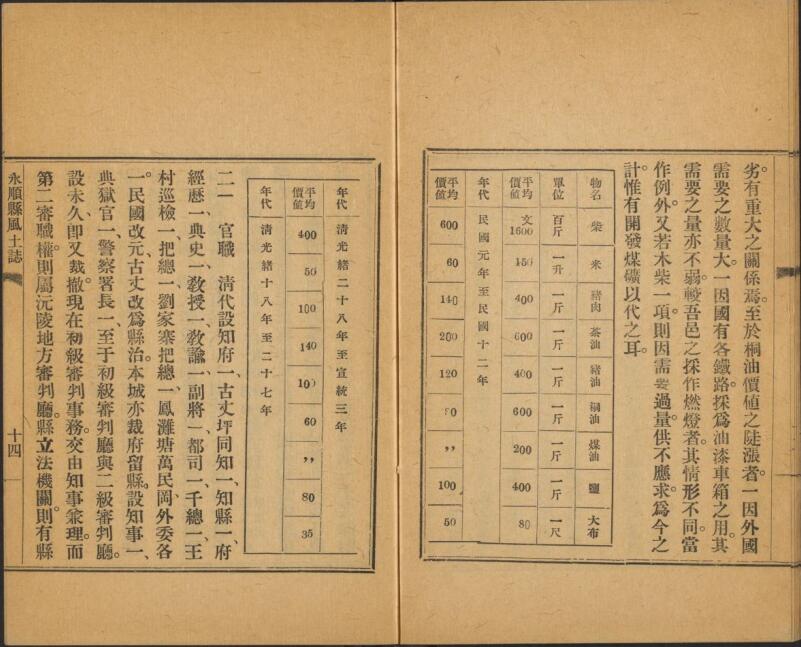 劣。有重大之關係焉。至於桐油價值之陡漲者。一因外國
需要之數量大。一因國有各鐵路。採爲油漆車箱之用。其
需要之量亦不弱。較吾邑之採作燃燈者。其情形不同。當
作例外。又若木柴一項。則因需要過量。供不應求。爲今之
計。惟有開發煤礦以代之耳。
物名 柴 米 豬肉 茶油 豬油 桐油 煤油 鹽 大布
單位 百斤 一升 一斤 一斤 一斤 一斤 一斤 一斤 一尺
平均價值 文1600 150 400 600 400 600 200 400 80
年代 民國元年至民國十二年
平均價值 600 60 140 200 120 80 〃 100 50
年代 清光緒二十八年至宣統三年
平均價值 400 50 100 140 100 60 〃 80 35
年代 清光緒十八年至二十七年
二一 官職 清代設知府一、古丈坪同知一、知縣一、府
經歷一、典史一、敎授一、敎諭一、副將一、都司一、千總一、王
村巡檢一、把總一、劉家寨把總一、鳳灘塘萬民岡外委各
一。民國改元、古丈改爲縣治。本城亦裁府留縣。設知事一、
典獄官一、警察署長一、至于初級審判廳與二級審判廳。
設未久、即又裁撤。現在初級審判事務。交由知事兼理。而
第二審職權。則屬沅陵地方審判廳。縣立法機關。則有縣
永順縣風土誌
十四